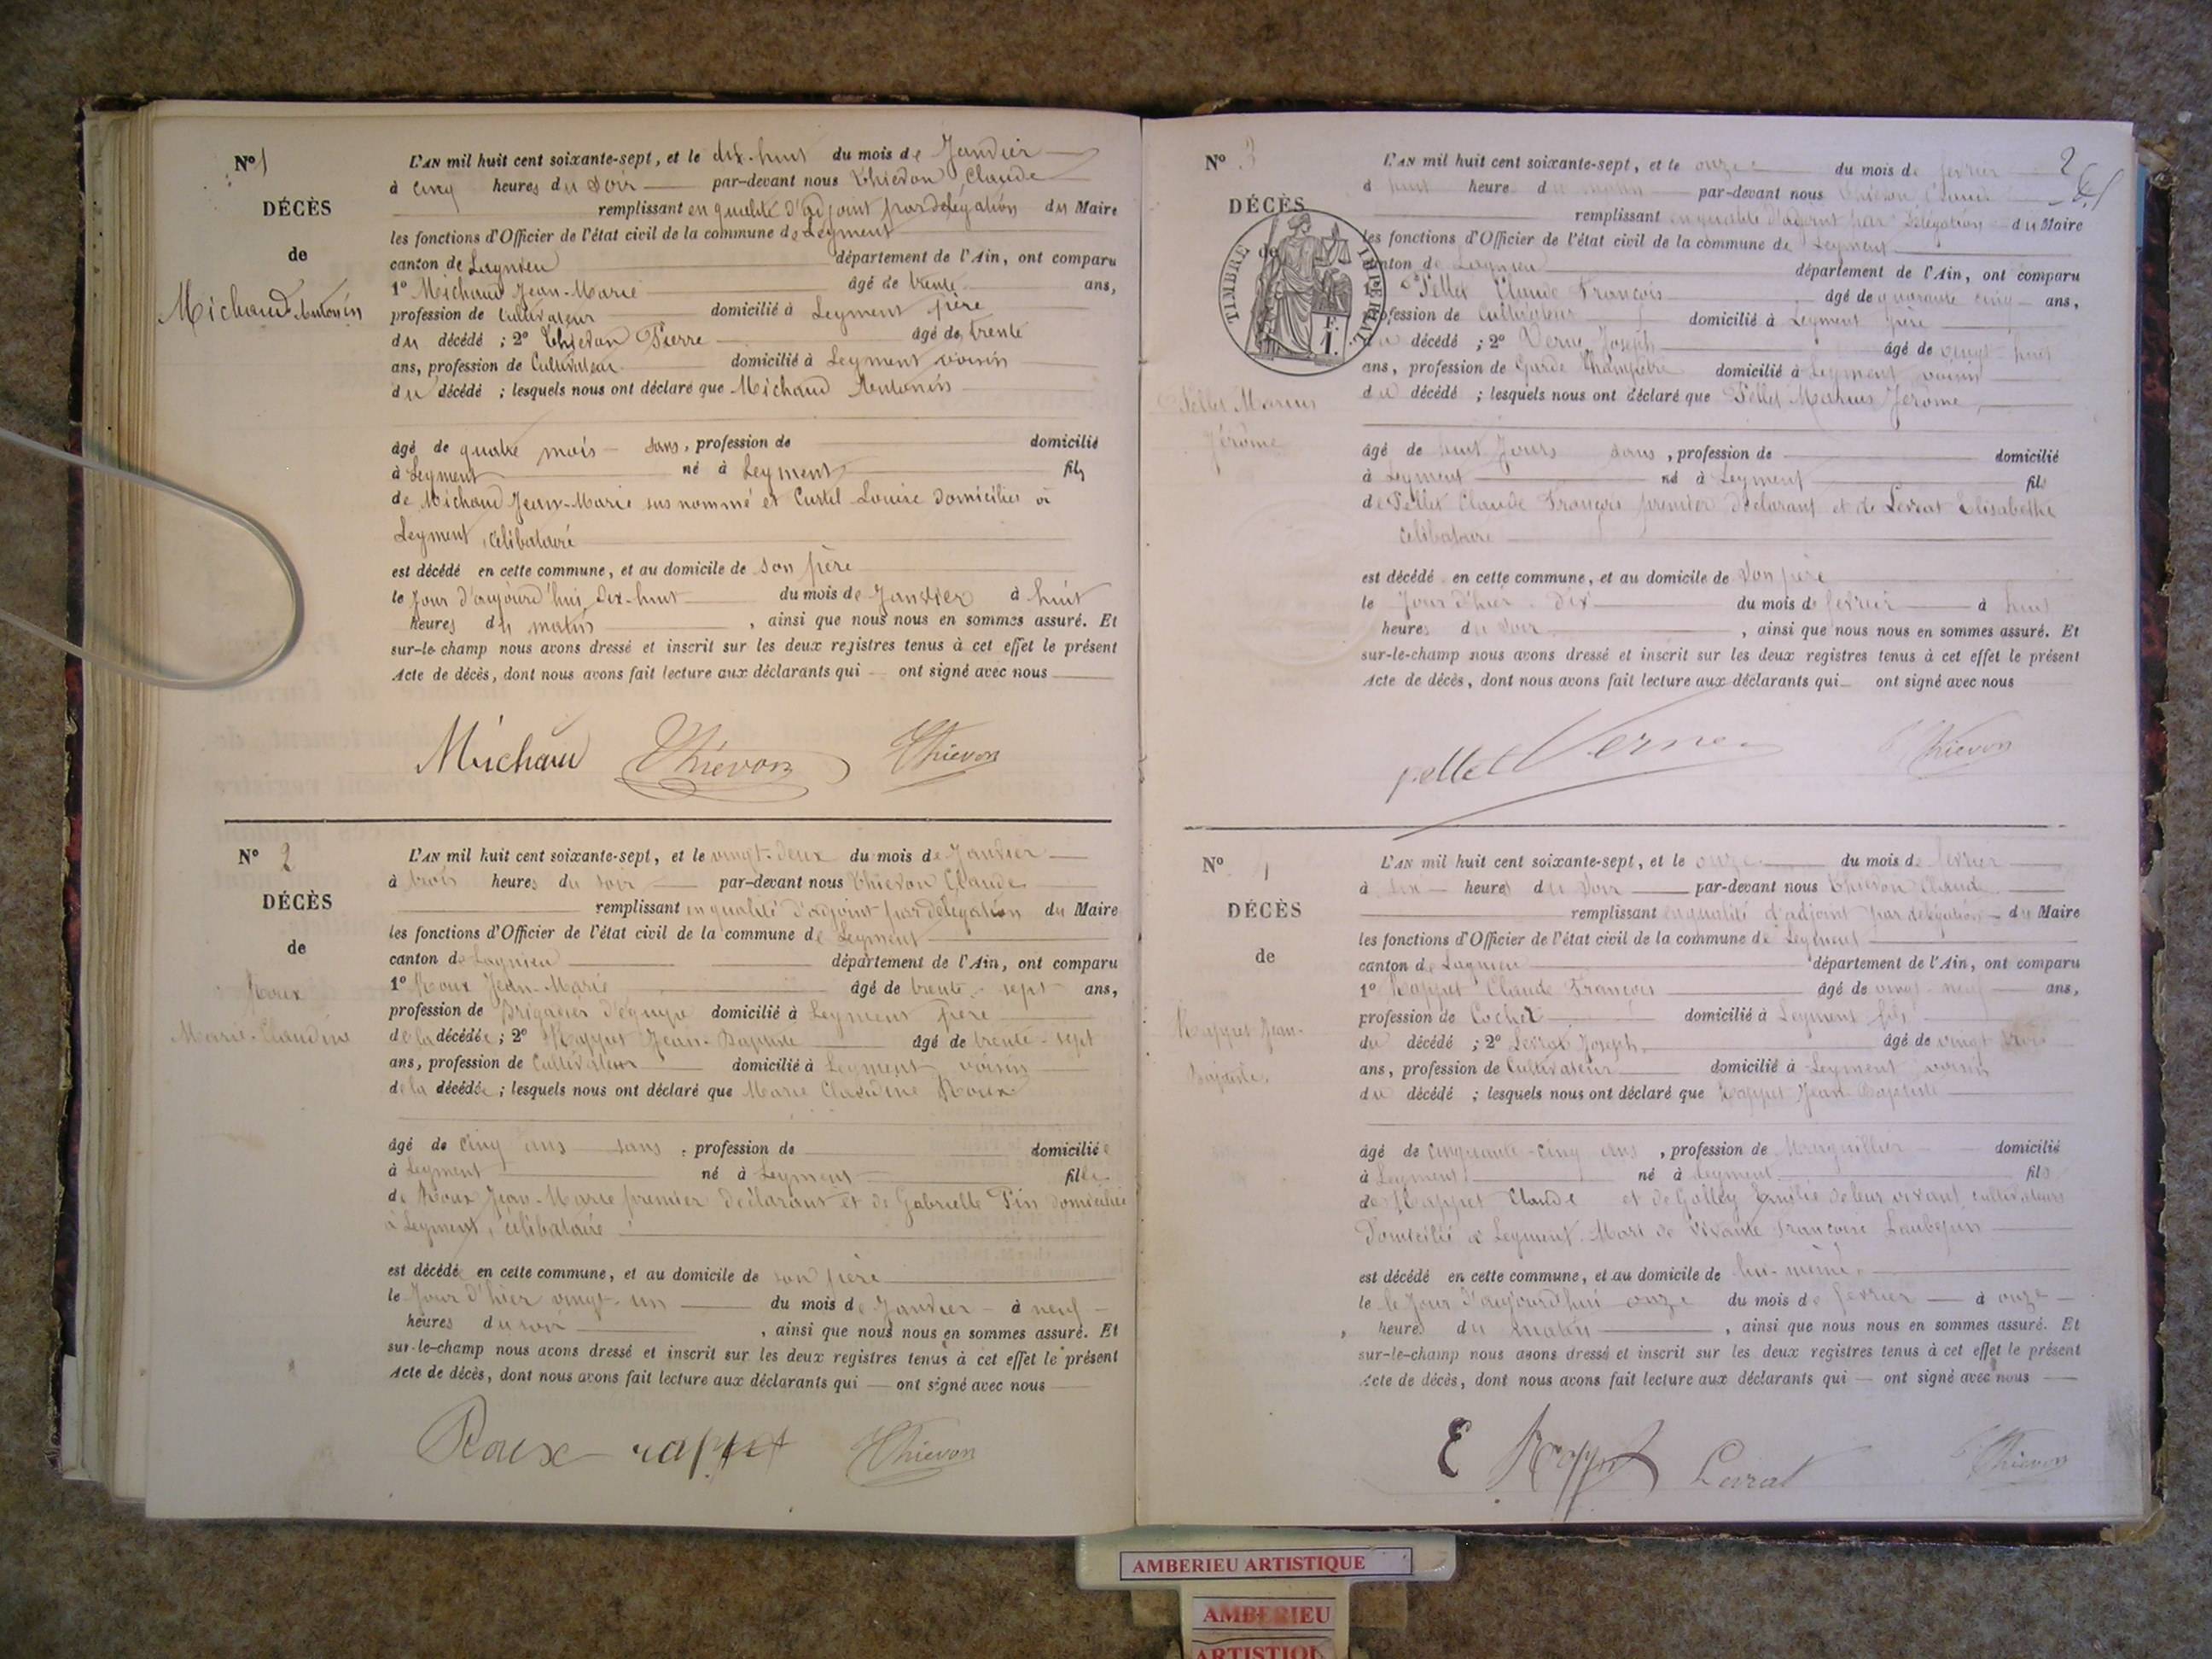 Nº 1
DÉCÈS
de
Michaud Antonin
L'AN mil huit cent soixante-sept, et le dix-huit du mois de Janvier
à cinq heures du soir par-devant nous Thiévon Claude
remplissant en qualité d'adjoint par délégation du Maire
les fonctions d'Officier de l'état civil de la commune de Leyment
canton de Lagnieu département de l'Ain, ont comparu
1º Michaud Jean-Marie âgé de trente ans,
profession de Cultivateur domicilié à Leyment père
du décédé ; 2º Thiévon Pierre âgé de trente
ans, profession de Cultivateur domicilié à Leyment voisin
du décédé ; lesquels nous ont déclaré que Michaud Antonin
âgé de quatre mois sans, profession de domicilié
à Leyment né à Leyment fils
de Michaud Jean-Marie sus nommé et Curtel Louise domiciliés à
Leyment, célibataire
est décédé en cette commune, et au domicile de son père
le Jour d'aujourd'hui dix-huit du mois de Janvier à huit
heures du matin, ainsi que nous nous en sommes assuré. Et
sur-le-champ nous avons dressé et inscrit sur les deux registres tenus à cet effet le présent
Acte de décès, dont nous avons fait lecture aux déclarants qui ont signé avec nous
Michaud Thiévon Thievon
Nº 2
DÉCÈS
de
Roux
Marie-Claudine
L'AN mil huit cent soixante-sept, et le vingt-deux du mois de Janvier
à trois heures du soir par-devant nous Thiévon Claude
remplissant en qualité d'adjoint par délégation du Maire
les fonctions d'Officier de l'état civil de la commune de Leyment
canton de Lagnieu département de l'Ain, ont comparu
1º Roux Jean-Marie âgé de trente-sept ans,
profession de Brigadier d'équipe domicilié à Leyment père
de la décédée ; 2º Rappet Jean-Baptiste âgé de trente-sept
ans, profession de Cultivateur domicilié à Leyment voisin
de la décédée ; lesquels nous ont déclaré que Marie Claudine Roux
âgé de cinq ans sans, profession de domiciliée
à Leyment né à Leyment fille
de Roux Jean-Marie premier déclarant et de Gabrielle Pin domiciliée
à Leyment, célibataire
est décédé en cette commune, et au domicile de son père
le Jour d'hier vingt-un du mois de Janvier à neuf
heures du soir, ainsi que nous nous en sommes assuré. Et
sur-le-champ nous avons dressé et inscrit sur les deux registres tenus à cet effet le présent
Acte de décès, dont nous avons fait lecture aux déclarants qui ont signé avec nous
Roux rappet Thievon
2
Nº 3
DÉCÈS
de
TIMBRE IMPERIAL
F. 1.
Pellet Marius
Jérôme
L'AN mil huit cent soixante-sept, et le onze du mois de février
à huit heure du matin par-devant nous Thiévon Claude
remplissant en qualité d'adjoint par délégation du Maire
les fonctions d'Officier de l'état civil de la commune de Leyment
canton de Lagnieu département de l'Ain, ont comparu
1º Pellet Claude François âgé de quarante cinq ans,
profession de Cultivateur domicilié à Leyment père
du décédé ; 2º Verne Joseph âgé de vingt-huit
ans, profession de Garde Champêtre domicilié à Leyment voisin
du décédé ; lesquels nous ont déclaré que Pellet Marius Jérome
âgé de huit Jours sans, profession de domicilié
à Leyment né à Leyment fils
de Pellet Claude François premier déclarant et de Levrat Elisabethe
célibataire
est décédé en cette commune, et au domicile de son père
le Jour d'hier dix du mois de février à huit
heures du soir, ainsi que nous nous en sommes assuré. Et
sur-le-champ nous avons dressé et inscrit sur les deux registres tenus à cet effet le présent
Acte de décès, dont nous avons fait lecture aux déclarants qui ont signé avec nous
pellet Verne Thievon
Nº 4
DÉCÈS
de
Rappet Jean-
Baptiste
L'AN mil huit cent soixante-sept, et le onze du mois de février
à six heures du soir par-devant nous Thiévon Claude
remplissant en qualité d'adjoint par délégation du Maire
les fonctions d'Officier de l'état civil de la commune de Leyment
canton de Lagnieu département de l'Ain, ont comparu
1º Rappet Claude François âgé de vingt-neuf ans,
profession de Cocher domicilié à Leyment fils
du décédé ; 2º Levrat Joseph âgé de vingt trois
ans, profession de Cultivateur domicilié à Leyment voisin
du décédé ; lesquels nous ont déclaré que Rappet Jean-Baptiste
âgé de cinquante-cinq ans, profession de Marguillier domicilié
à Leyment né à Leyment fils
de Rappet Claude et de Golley Emilie de leur vivant cultivateurs
Domicilié à Leyment. Mari de vivante Françoise Laubepin
est décédé en cette commune, et au domicile de lui-même
le le Jour d'aujourd'hui onze du mois de février à onze
heures du matin, ainsi que nous nous en sommes assuré. Et
sur-le-champ nous avons dressé et inscrit sur les deux registres tenus à cet effet le présent
Acte de décès, dont nous avons fait lecture aux déclarants qui ont signé avec nous
Rappet Levrat Thievon
AMBERIEU ARTISTIQUE
AMBERIEU
ARTISTIQ